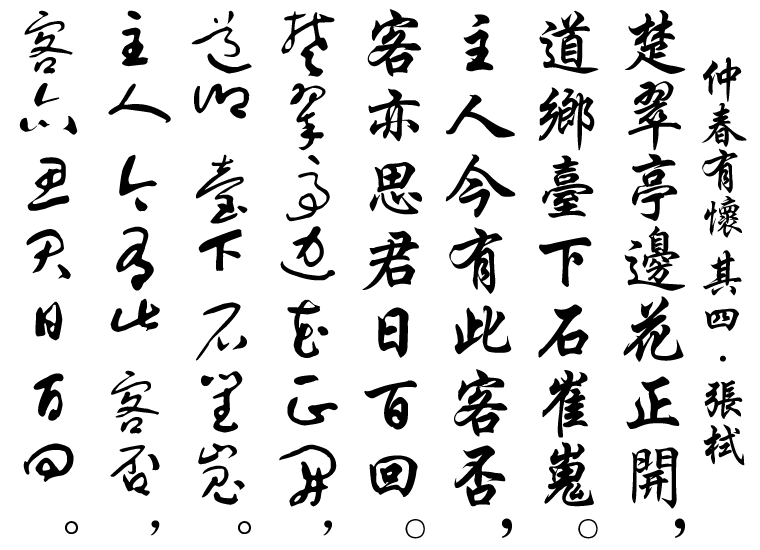 仲春有懷其四·張栻
楚翠亭邊花正開，
道鄉臺下石崔嵬。
主人今有此客否，
客亦思君日百回。
楚翠亭邊花正開，
道鄉臺下石崔嵬。
主人今有此客否，
客亦思君日百回。